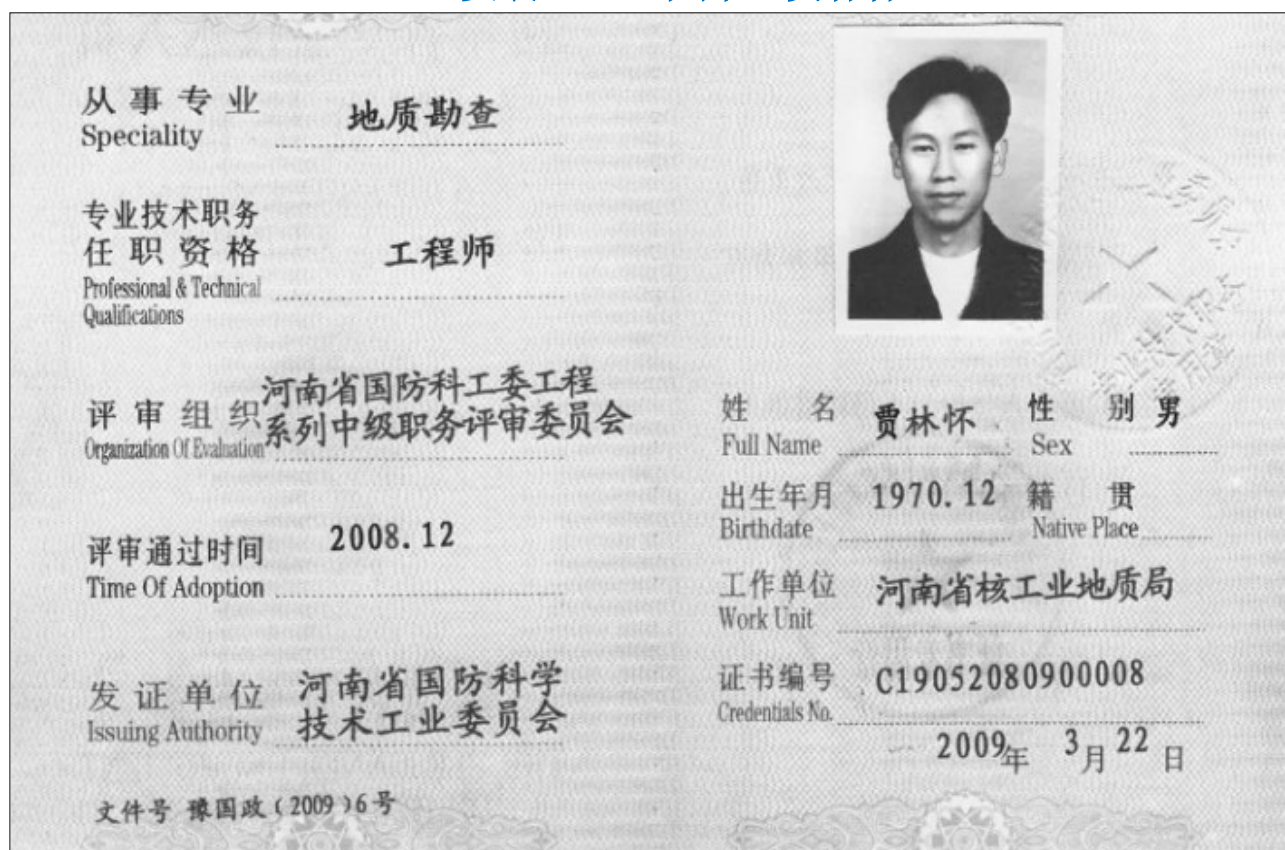 从事专业 地质勘查
Speciality
专业技术职务
任职资格 工程师
Professional & Technical
Qualifications
河南省国防科工委工程
评审组织 系列中级职务评审委员会
Organization Of Evaluation
评审通过时间 2008.12
Time Of Adoption
河南省国防科学
发证单位 技术工业委员会
Issuing Authority
文件号 豫国政(2009)6号
姓名 贾林怀 性别 男
Full Name Sex
出生年月 1970.12 籍贯
Birthdate Native Place
工作单位 河南省核工业地质局
Work Unit
证书编号 C19052080900008
Credentials No.
2009年 3月 22日